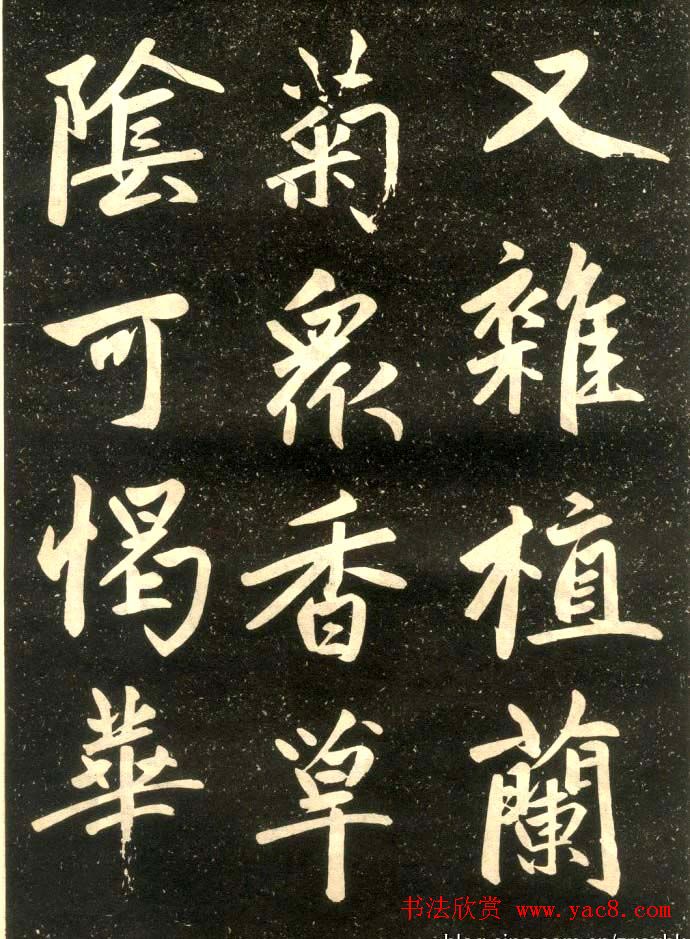 又雜植蘭
菊眾香草
陰可愒華
书法欣赏 www.yac8.com